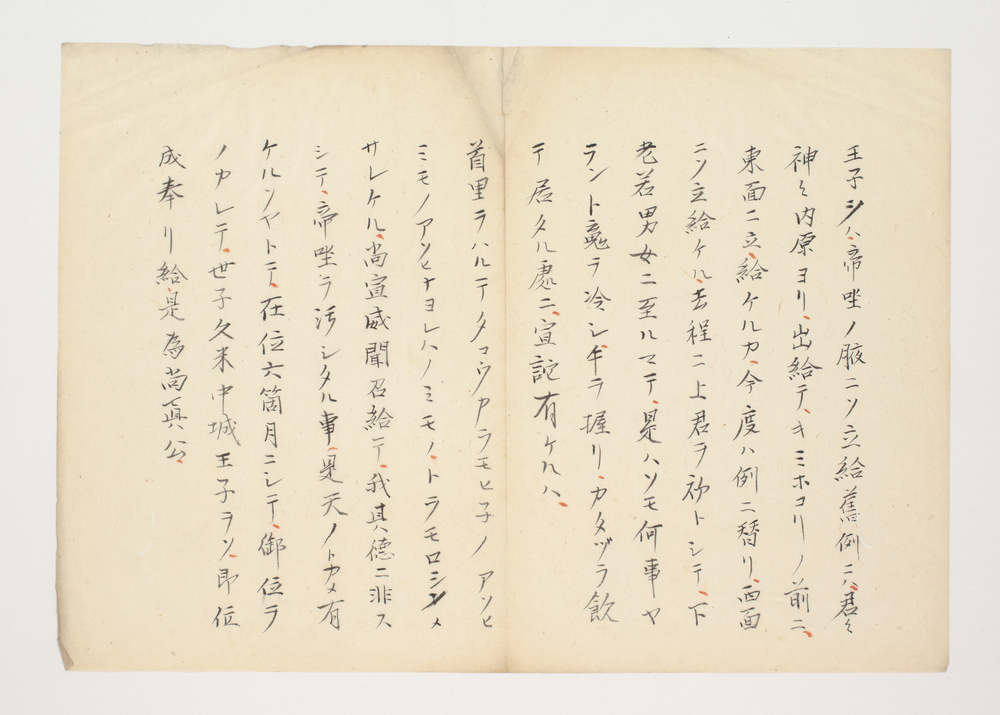 王子シハ、帝唑ノ腋ニソ立給舊例ニハ、君〻
神〻内原ヨリ、出給テ、キミホコリノ前ニ、
東面ニ立、給ケルカ、今度ハ例ニ替リ、西面
ニソ立給ケル、去程ニ上君ヲ初トシテ、下
老若男女ニ至ルマテ、是ハソモ何事ヤ
ラント䰟ヲ冷シ、手ヲ握リ、カタヅヲ飲
テ居タル處ニ、宣託有ケルハ、
首里ヲハルテタコウアラモヒ子ノアソヒ
ミモノアソヒナヨレハノミモノ、トラモロシンメ
サレケル、尚宣威聞召給テ、我其德ニ非ス
シテ、帝唑ヲ汚シタル事、是天ノトカメ有
ケルソヤトテ、在位六箇月ニシテ、御位ヲ
ノカレテ、世子久米中城王子ヲソ、即位
成奉リ給、是為尚眞公、